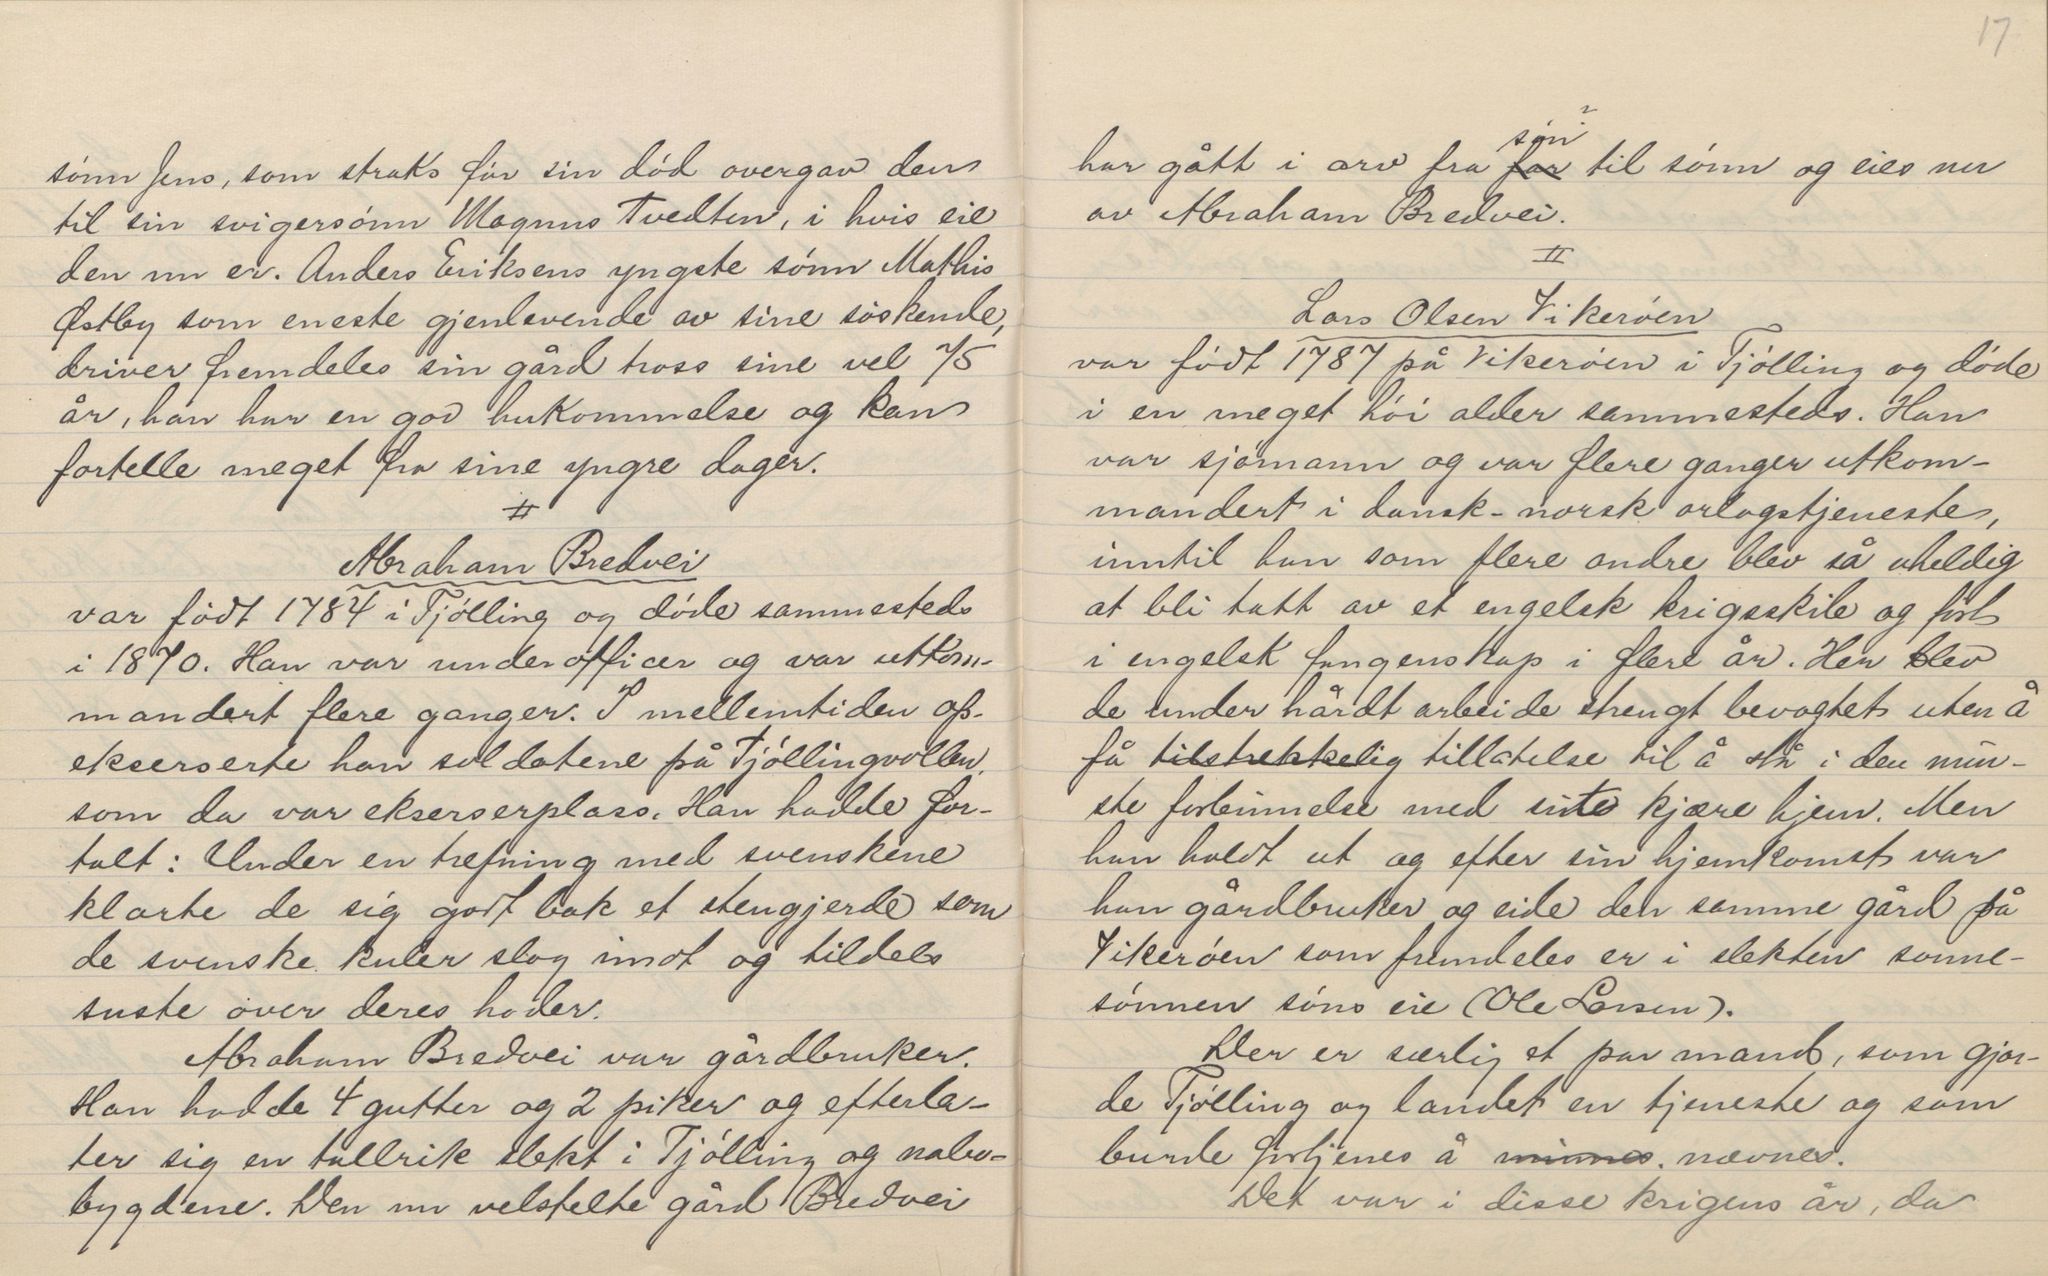 sónn Jens, som straks før sin död overgav den
til sin svigersónn Magnus Tvedten, i hvis eie
den nu er. Anders Eriksens yngste sónn Mathis
Østby som eneste gjenlevende av sine söskende,
driver fremdeles sin gård tross sine vel 75
år, han har en god hukommelse og kan
fortelle meget fra sine yngre dager.
II
Abraham Bredvei
var fódt 1784 i Tjólling og dóde sammesteds
i 1870. Han var underofficer og var utkom-
mandert flere ganger. I mellemtiden op-
ekserserte han soldatene på Tjóllingvollen,
som da var ekserserplass. Han hadde for-
talt: Under en trefning med svenskene
klarte de sig godt bak et stengjerde som
de svenske kuler slog imot og tildels
suste over deres hoder.
Abraham Bredvei var gårdbruker.
Han hadde 4 gutter og 2 piker og efterla-
ter sig en tallrik slekt i Tjólling og nabo-
bygdene. Den nu velstelte gård Bredvei
17
har gått i arv fra far són til sónn og eies nu
av Abraham Bredvei.
II
Lars Olsen Vikeröen
var fódt 1787 på Vikeróen i Tjólling og dóde
i en meget hói alder sammesteds. Han
var sjømann og var flere ganger utkom-
mandert i dansk-norsk orlogstjeneste,
inntil han som flere andre blev så uheldig
at bli tatt av et engelsk krigsskib og fört
i engelsk fangenskap i flere år. Her blev
de under hårdt arbeide strengt bevogtet uten å
få tilstrekkelig tillatelse til å stå i den min-
ste forbinnelse med sitt kjære hjem. Men
han holdt ut og efter sin hjemkomst var
han gårdbruker og eide den samme gård på
Vikeróen som fremdeles er i slekten sonne-
sónnen sóns eie (Ole Larsen).
Der er særlig et par mand, som gjor-
de Tjólling og landet en tjeneste og som
burde fortjenes å minnes. nævnes.
Det var i disse krigens år, da